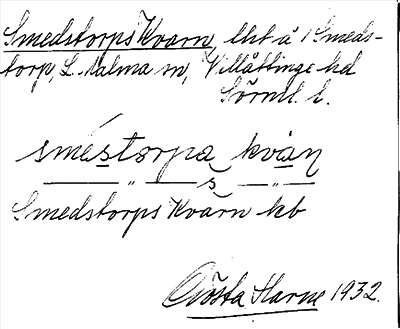 Smedstorps Kvarn, lht å 1 Smeds-
torp, L. Malma sn, Villåttinge hd
Sörml. l.
smèstorpa kvàn
—— " —— s —— " ——
Smedstorps Kvarn kb
Gösta Harne 1932.